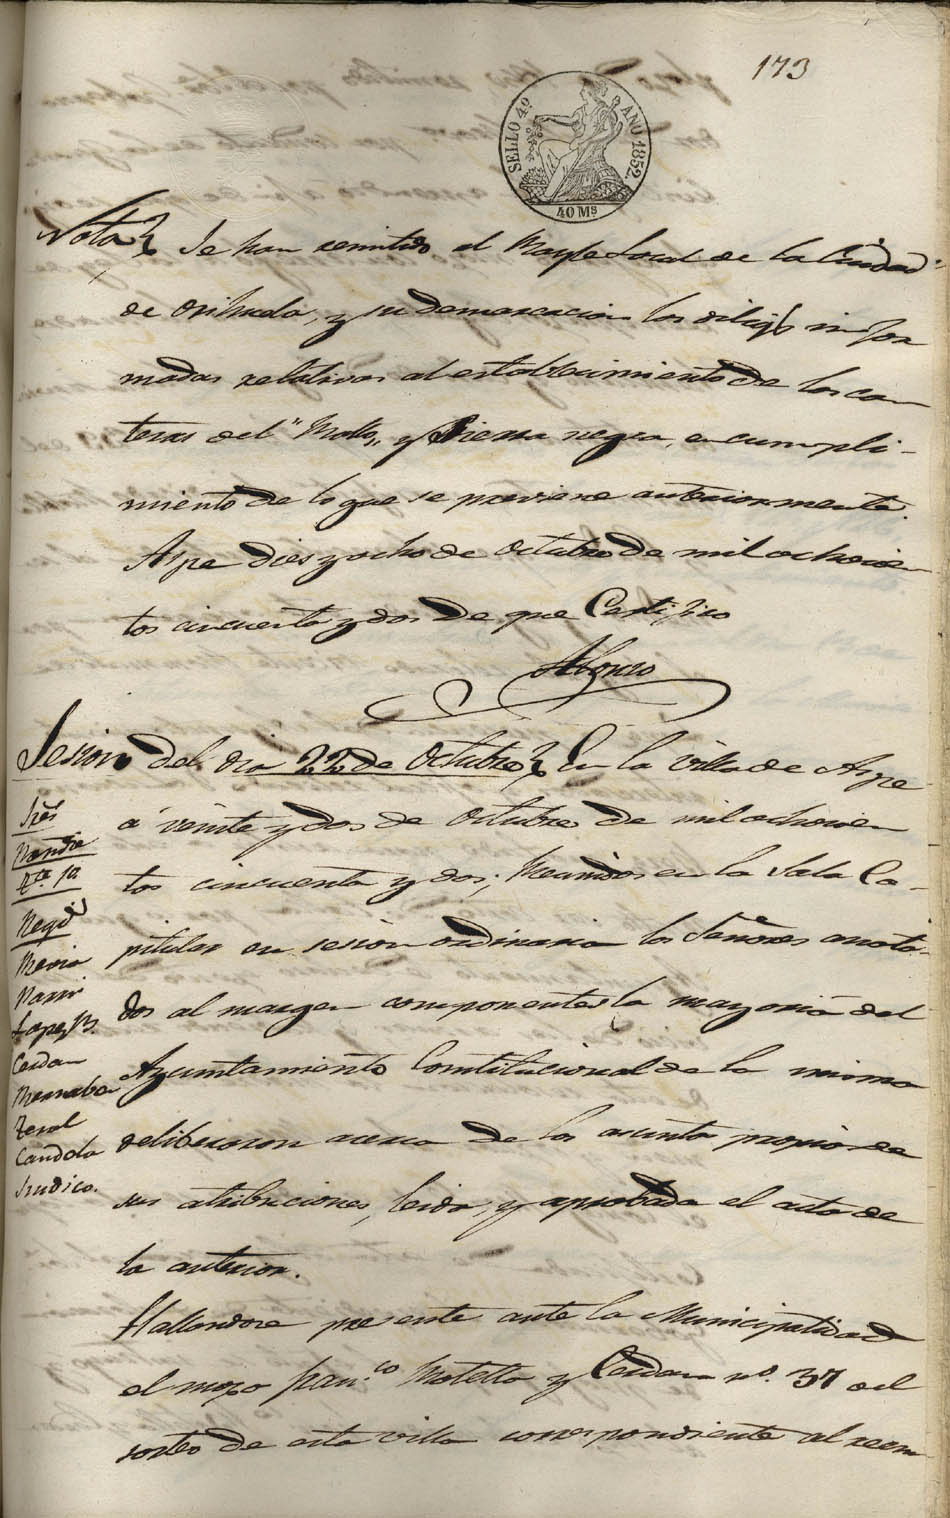 173
SELLO 4º AÑO 1852.
40 Ms
Nota Se han remitido al de la Ciudad
de Orihuela, y su demarcacion los infor
madas relativas al establecimiento de las can
teras del "Mollo,, y Sierra negra, en cumpli-
miento de lo que se previene anteriormente.
Aspe diez y ocho de Octubre de mil ochocien
tos cincuenta y dos de que Certifico
Alonso
Sesion del dia 22 de Octubre En la villa de Aspe
á veinte y dos de Octubre de mil ochocien
tos cincuenta y dos; Reunidos en la Sala Ca-
pitular en sesion ordinaria los Señores anota-
dos al margen componentes la mayoria del
Ayuntamiento Constitucional de la misma
deliberaron acerca de los asuntos propios de
sus atribuciones, leida, y aprobada el acta de
la anterior.
Sres
Tte. 1º
Regid
Mexia
Lopez
Cerdan
Terol
Candela
Sindico.
Hallandose presente ante la Municipalidad
el mozo Fran.co Motella y Cerdan nº. 37 del
sorteo de esta villa correspondiente al reem